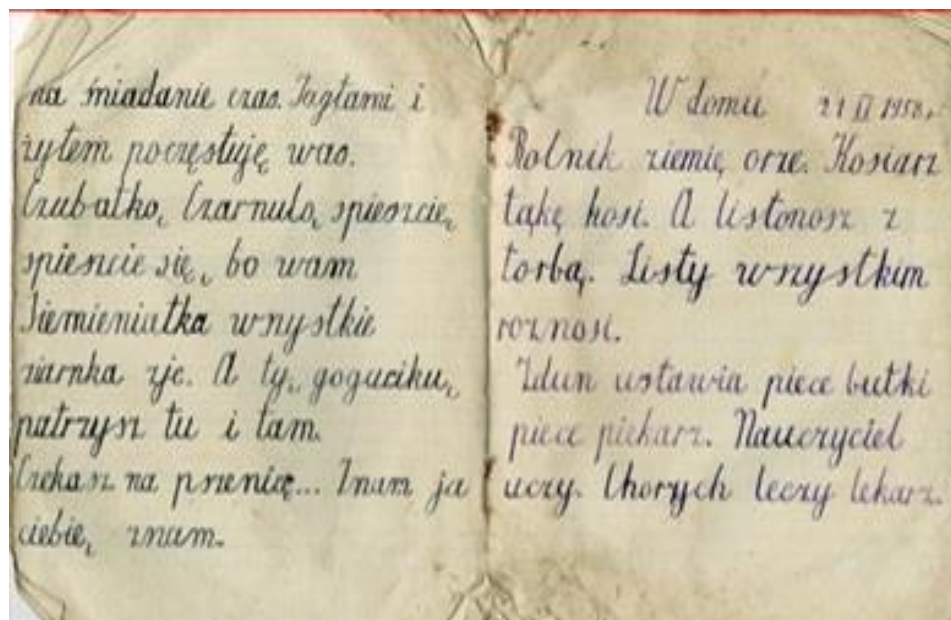 na śniadanie czas. Jagłami i
żytem poczęstuję was.
Czubatko, Czarnulo, spieszcie,
spieszcie się, bo wam
Siemieniatka wszystkie
ziarnka zje. A ty, goguciku,
patrzysz tu i tam.
Czekasz na pszenicę... Znam ja
ciebie, znam.
W domu 21 II 1958r.
Rolnik ziemię orze. Kosiarz
łąkę kosi. A listonosz z
torbą. Listy wszystkim
roznosi.
Zdun ustawia piece bułki
piecze piekarz. Nauczyciel
uczy. Chorych leczy lekarz.